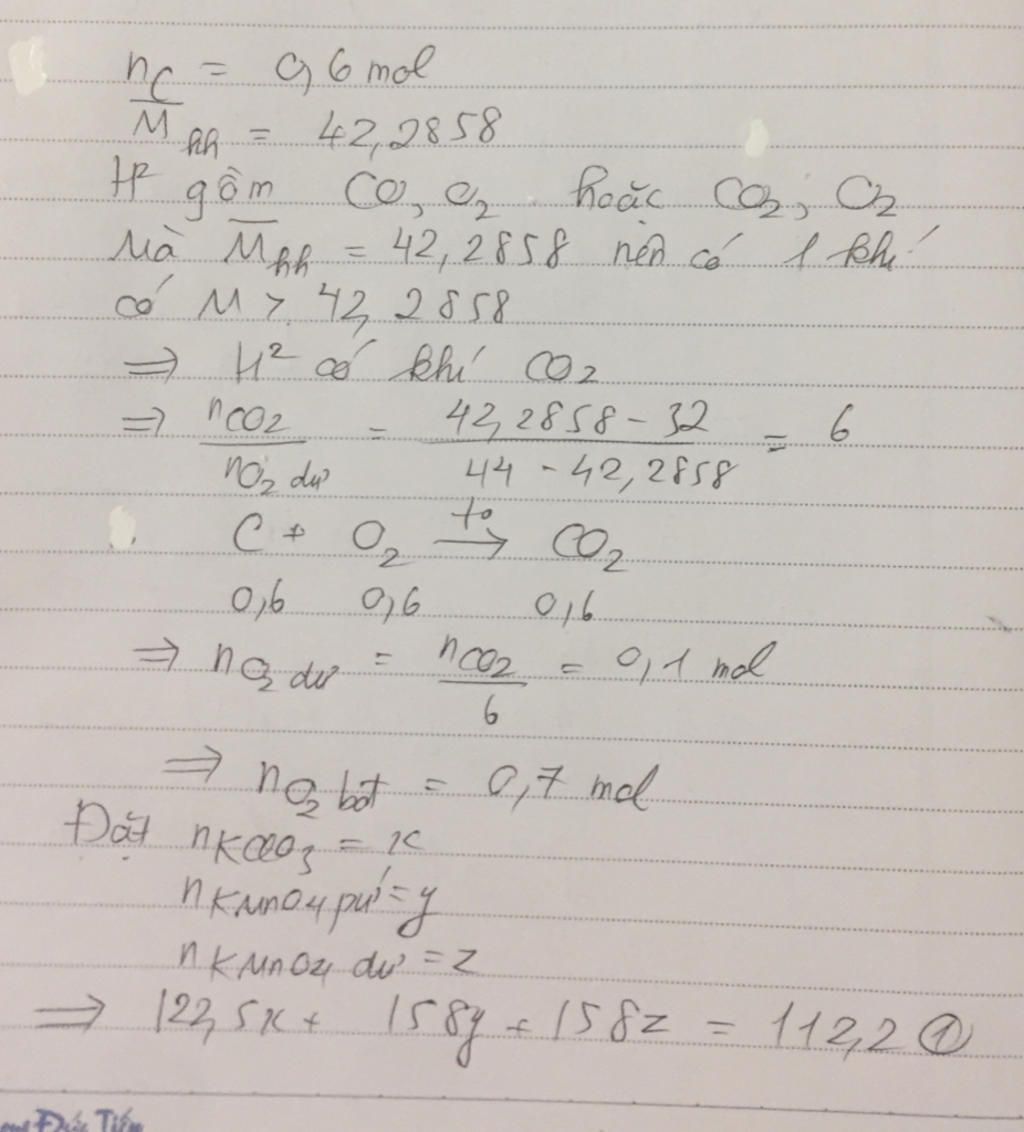 nC = 0,6 mol
M̅hh = 42,2858
H² gồm CO, O2 hoặc CO2, O2
Mà M̅hh = 42,2858 nên có 1 khí
có M > 42,2858
⇒ H² có khí CO2
⇒ nCO2 / nO2 dư = (42,2858 - 32) / (44 - 42,2858) = 6
C + O2 →(t°) CO2
0,6 0,6 0,6
⇒ nO2 dư = nCO2 / 6 = 0,1 mol
⇒ nO2 bđ = 0,7 mol
Đặt nKClO3 = x
nKMnO4 pứ = y
nKMnO4 dư = z
⇒ 122,5x + 158y + 158z = 112,2 ①
Đức Tiến